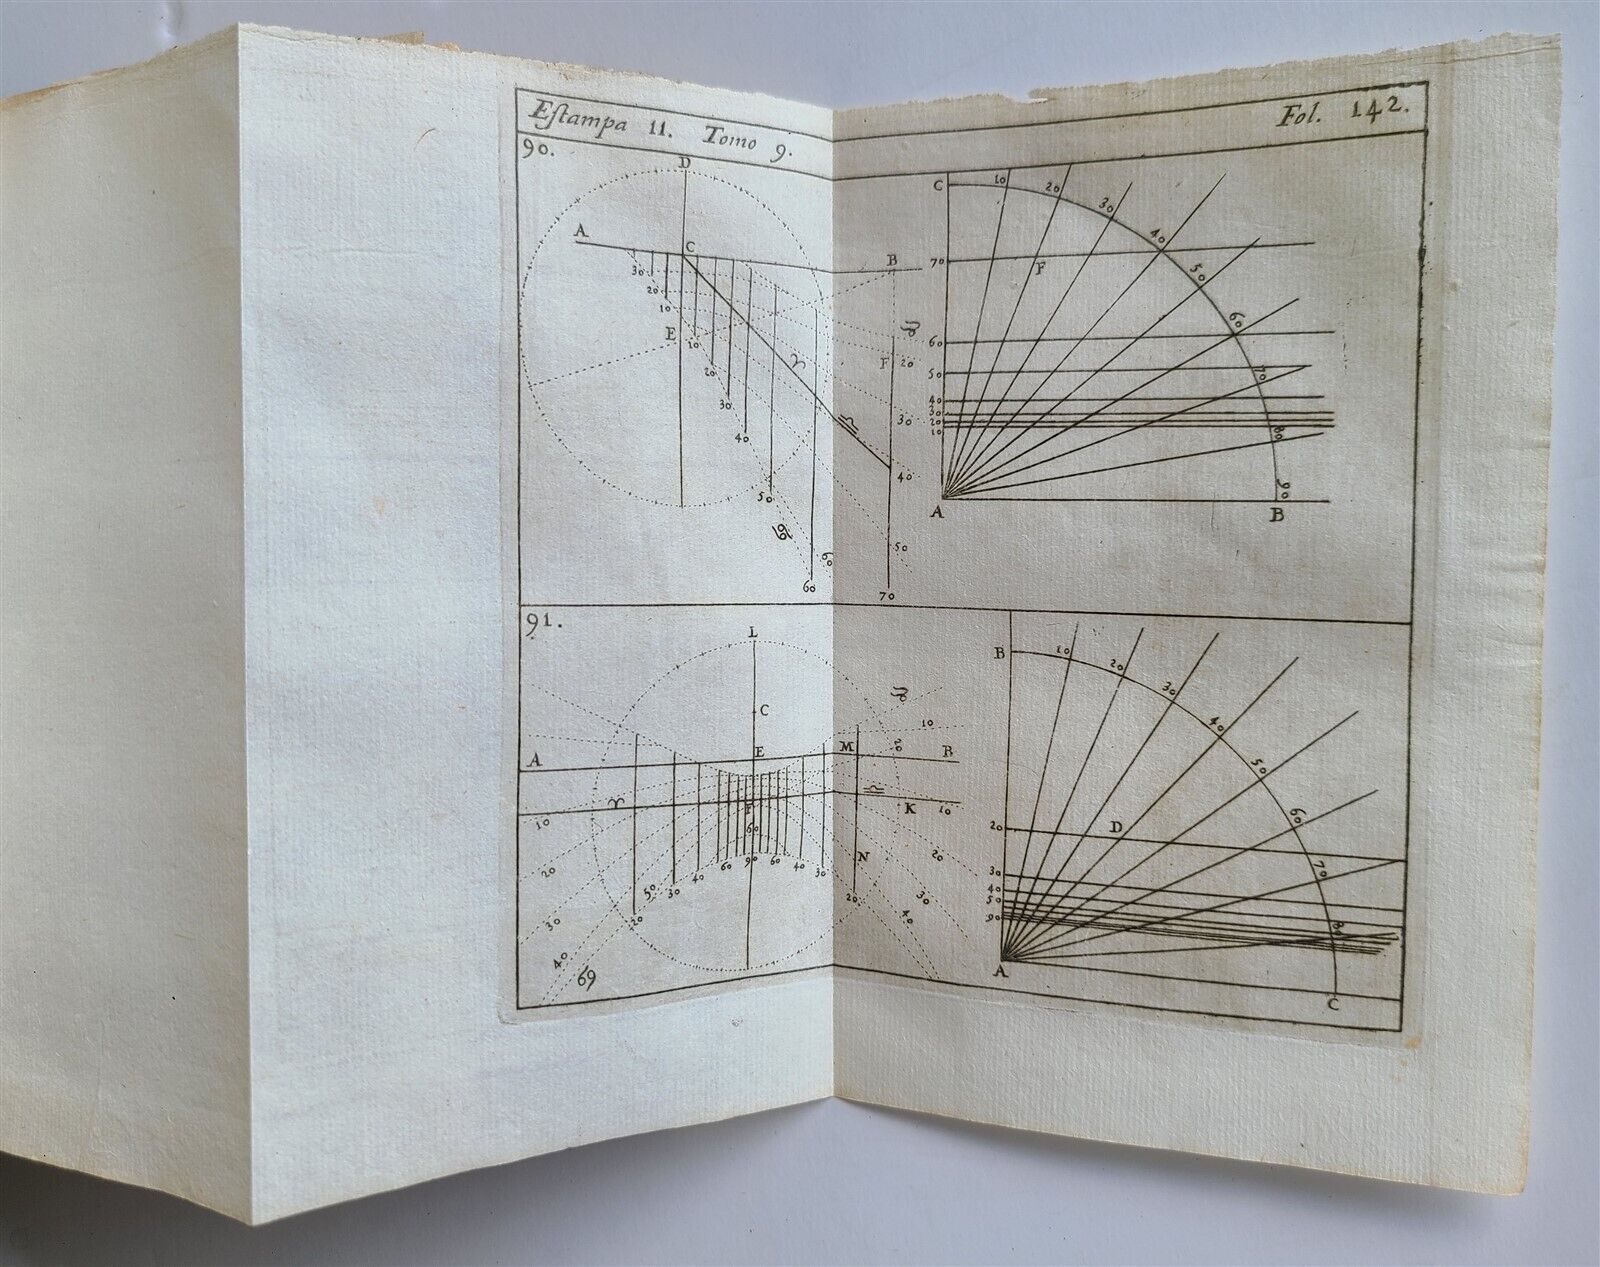 Eſtampa 11. Tomo 9. Fol. 142.
90.
D
A C B
30
20
10
E
10
20
30
40
50
60
70
♈
♎
♑
F 20
30
40
50
♋
C 10 20 30 40 50 60 70 80 90
70 F
60
50
40
30
20
10
A B
91.
L
C
A E M B
♈ F ♎ K
♑
10
20
10 10
20 60 N 20
30 30
40 50 40
20 30 40 60 90 60 40 30 20
♋
B 10 20 30 40 50 60 70 80
20 D
30
40
50
90
A C